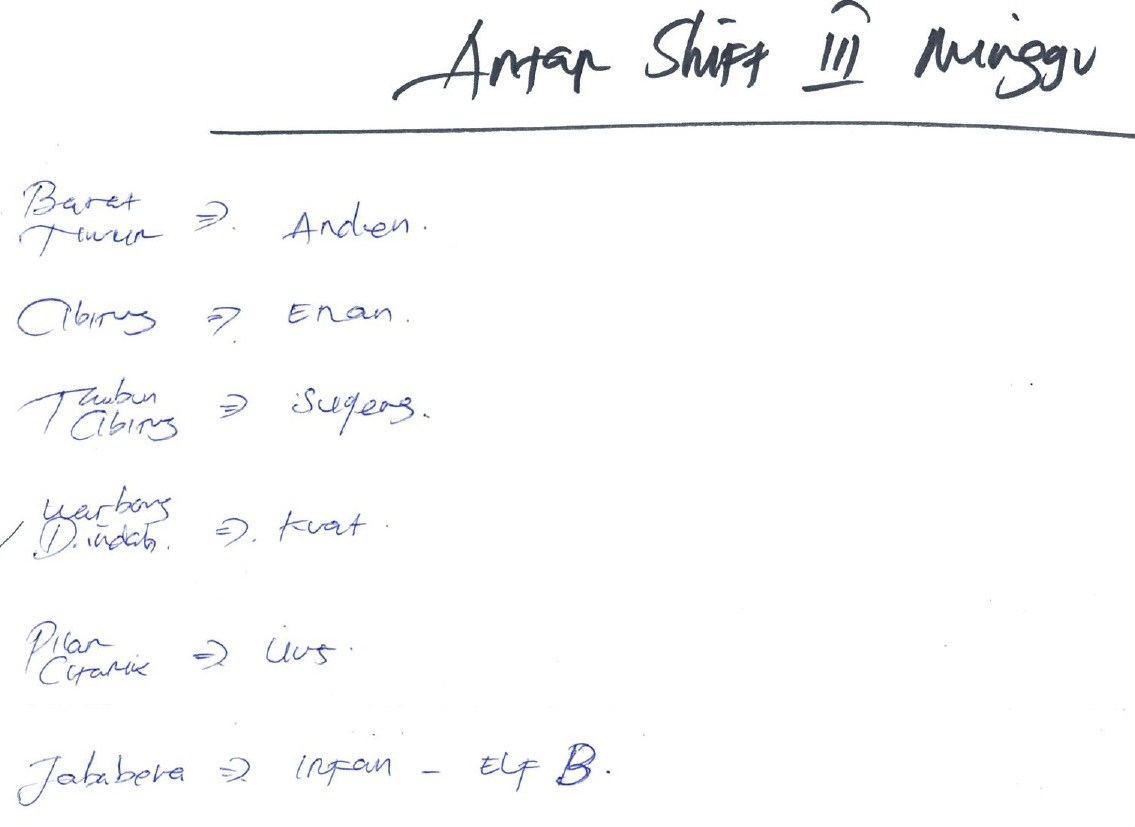 Antar Shift III Minggu
Barat
Timur ⇒ Andien.
Cibitung ⇒ Enan.
Tambun
Cibitung ⇒ Sugeng.
Warbong
D. indah. ⇒ Kuat.
Pilar
Citarik ⇒ Uus.
Jababeka ⇒ irfan - ELF B.